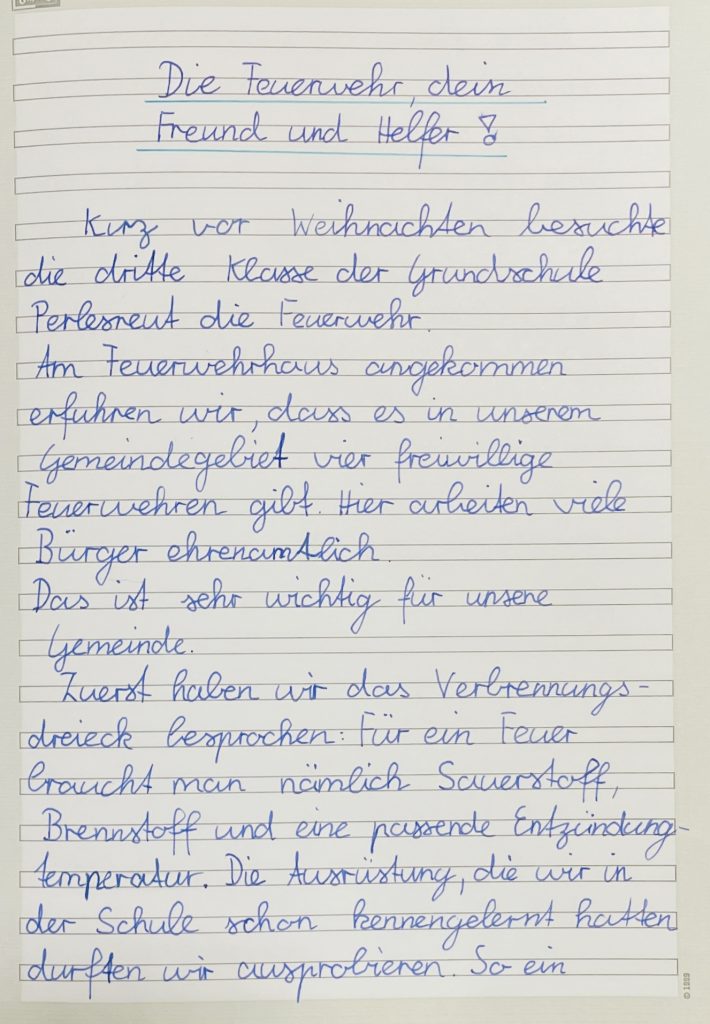 Die Feuerwehr, dein
Freund und Helfer!
Kurz vor Weihnachten besuchte
die dritte Klasse der Grundschule
Perlesreut die Feuerwehr.
Am Feuerwehrhaus angekommen
erfuhren wir, dass es in unserem
Gemeindegebiet vier freiwillige
Feuerwehren gibt. Hier arbeiten viele
Bürger ehrenamtlich.
Das ist sehr wichtig für unsere
Gemeinde.
Zuerst haben wir das Verbrennungs-
dreieck besprochen: Für ein Feuer
braucht man nämlich Sauerstoff,
Brennstoff und eine passende Entzündung-
temperatur. Die Ausrüstung, die wir in
der Schule schon kennengelernt hatten
durften wir ausprobieren. So ein
© 1989